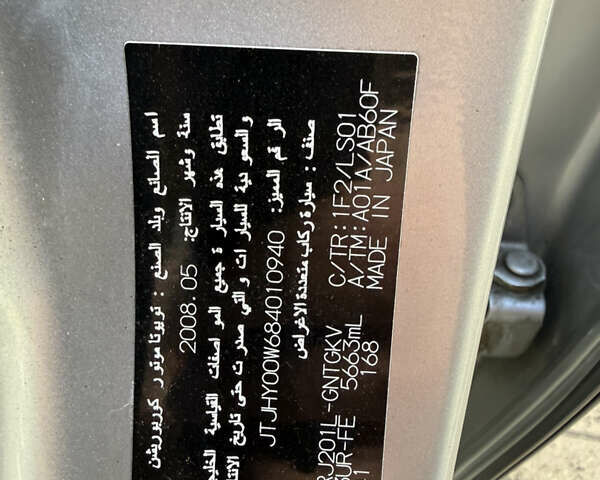 اسم الصانع وبلد الصنع : تويوتا موتور كوربوريشن
سنة وشهر الانتاج: 2008.05
تطابق هذه السيارة جميع المواصفات القياسية
والسعودية للسيارات والتي صدرت حتى تاريخ
الرقم المميز: JTJHY00W684010940
صنف : سيارة ركاب متعددة الاغراض
RJ201L-GNTGKV C/TR:1F2/LS01
UR-FE 5663mL A/TM:A01A/AB60F
168 MADE IN JAPAN